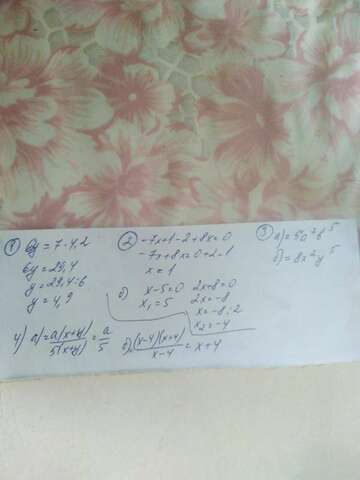 1) 6y = 7·4,2
6y = 29,4
y = 29,4:6
y = 4,9
2) -7x+1-2+8x=0
-7x+8x=0+2-1
x = 1
б) x-5=0 2x+8=0
x₁=5 2x=-8
x=-8:2
x₂=-4
3) а) = 5a²b⁵
б) = 8x²y⁵
4) а) = a(x+y)/5(x+y) = a/5
б) = (x-4)(x+4)/x-4 = x+4